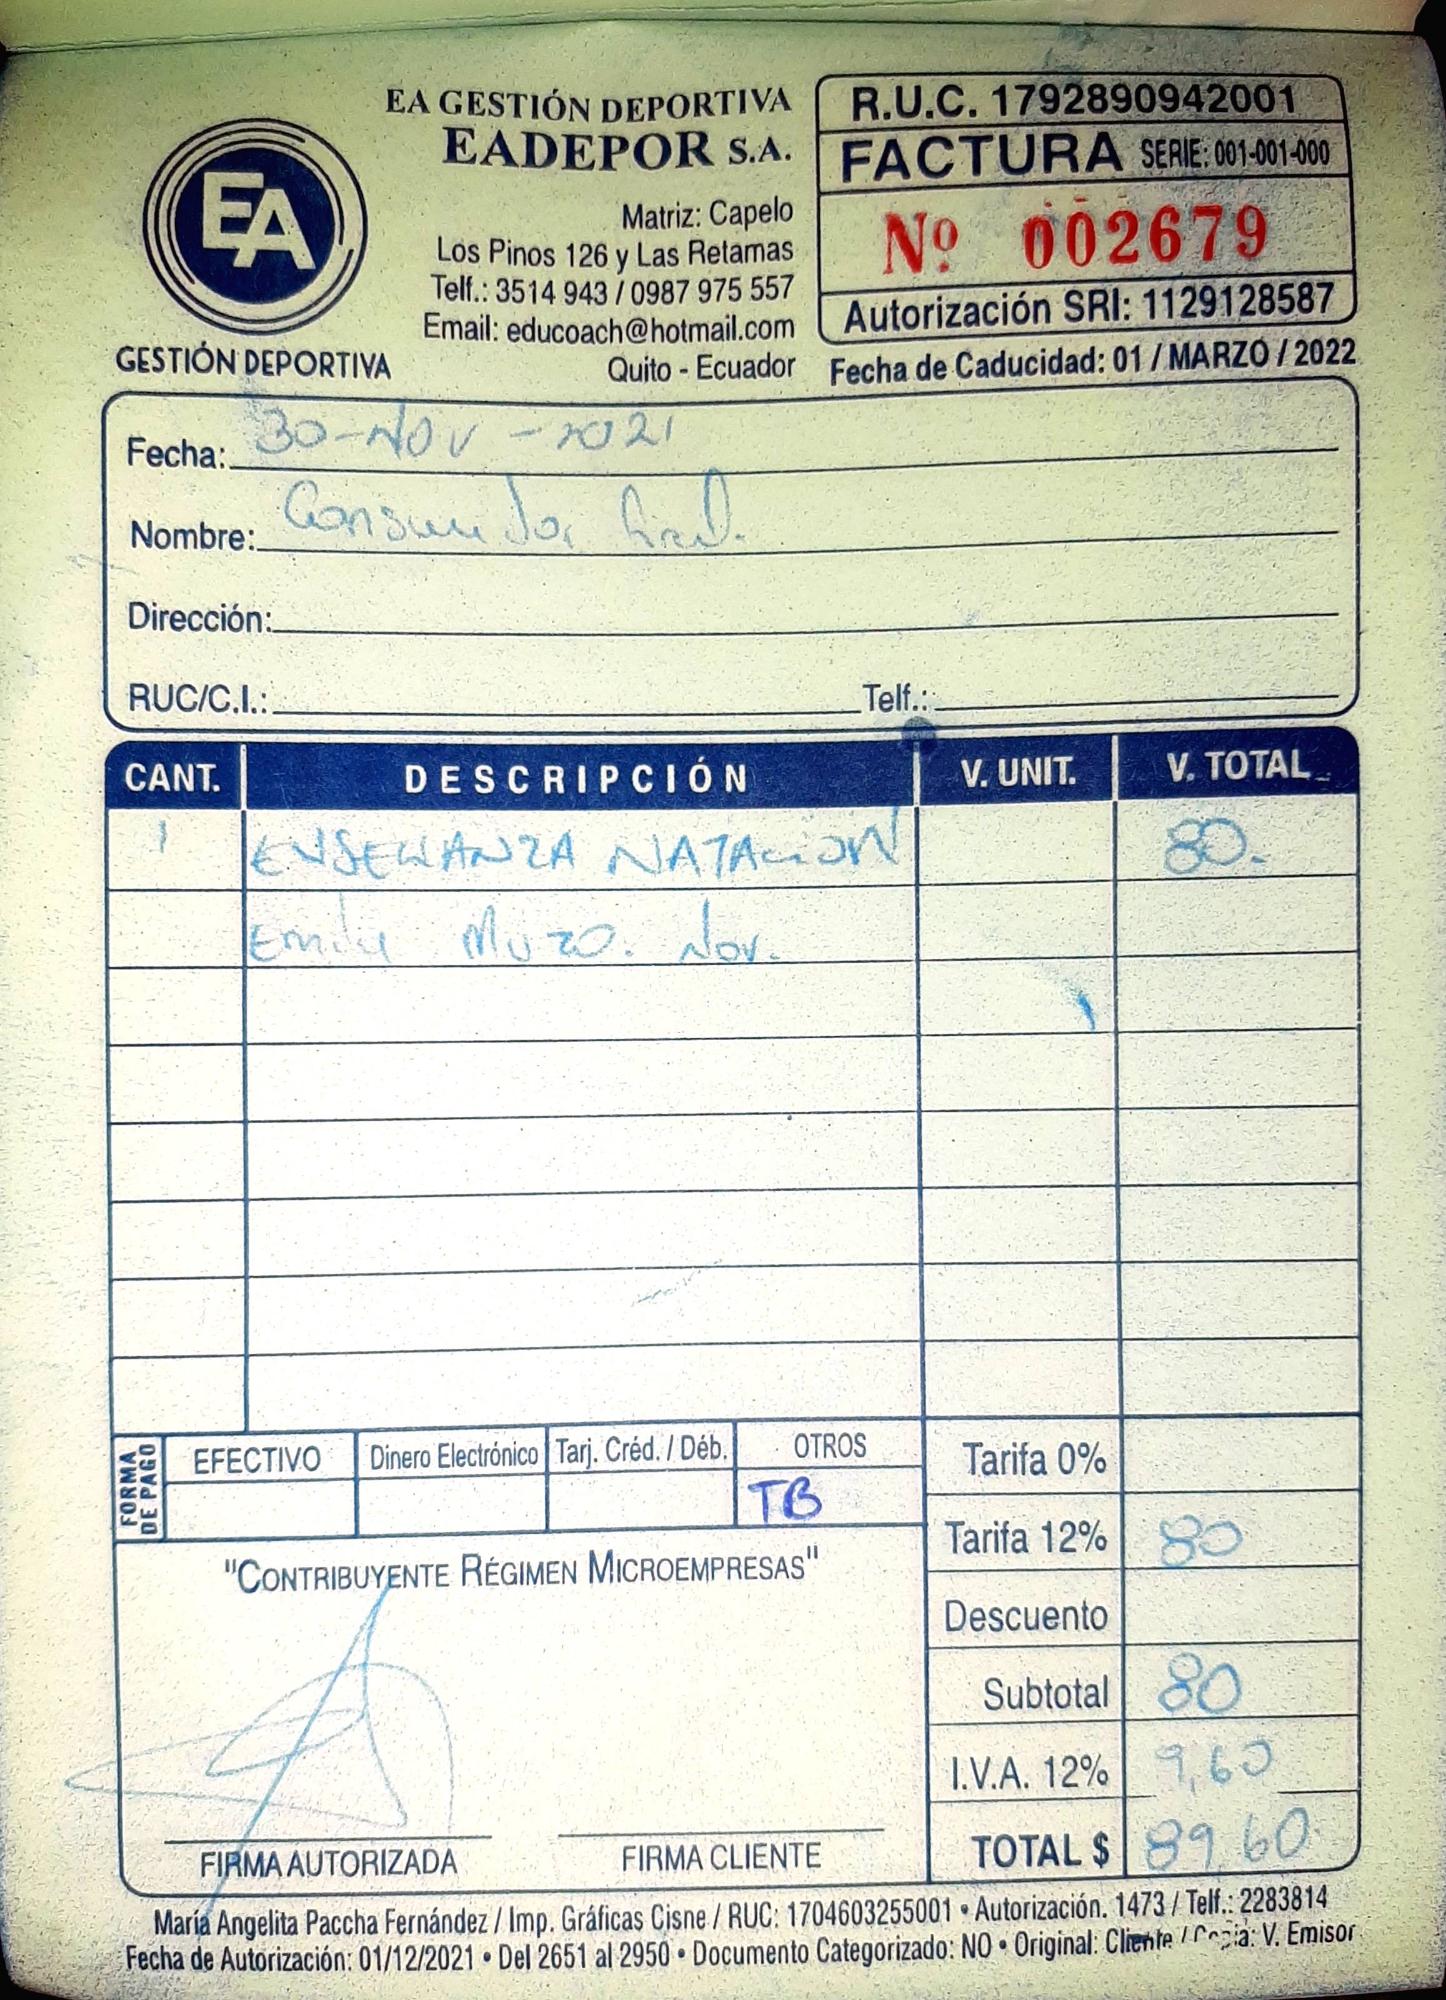 EA GESTIÓN DEPORTIVA
EADEPOR S.A.
EA
GESTIÓN DEPORTIVA
Matriz: Capelo
Los Pinos 126 y Las Retamas
Telf.: 3514 943 / 0987 975 557
Email: educoach@hotmail.com
Quito - Ecuador
R.U.C. 1792890942001
FACTURA SERIE: 001-001-000
Nº 002679
Autorización SRI: 1129128587
Fecha de Caducidad: 01 / MARZO / 2022
Fecha: 30-NOV-2021
Nombre: Consumidor
Dirección:
RUC/C.I.: Telf.:
CANT. DESCRIPCIÓN V. UNIT. V. TOTAL
1 ENSEÑANZA NATACION 80.
Muzo. Nov.
FORMA DE PAGO
EFECTIVO Dinero Electrónico Tarj. Créd. / Déb. OTROS
TB
Tarifa 0%
Tarifa 12% 80
Descuento
Subtotal 80
I.V.A. 12% 9,60
TOTAL $ 89,60
"CONTRIBUYENTE RÉGIMEN MICROEMPRESAS"
FIRMA AUTORIZADA FIRMA CLIENTE
María Angelita Paccha Fernández / Imp. Gráficas Cisne / RUC: 1704603255001 • Autorización. 1473 / Telf.: 2283814
Fecha de Autorización: 01/12/2021 • Del 2651 al 2950 • Documento Categorizado: NO • Original: Cliente / Copia: V. Emisor